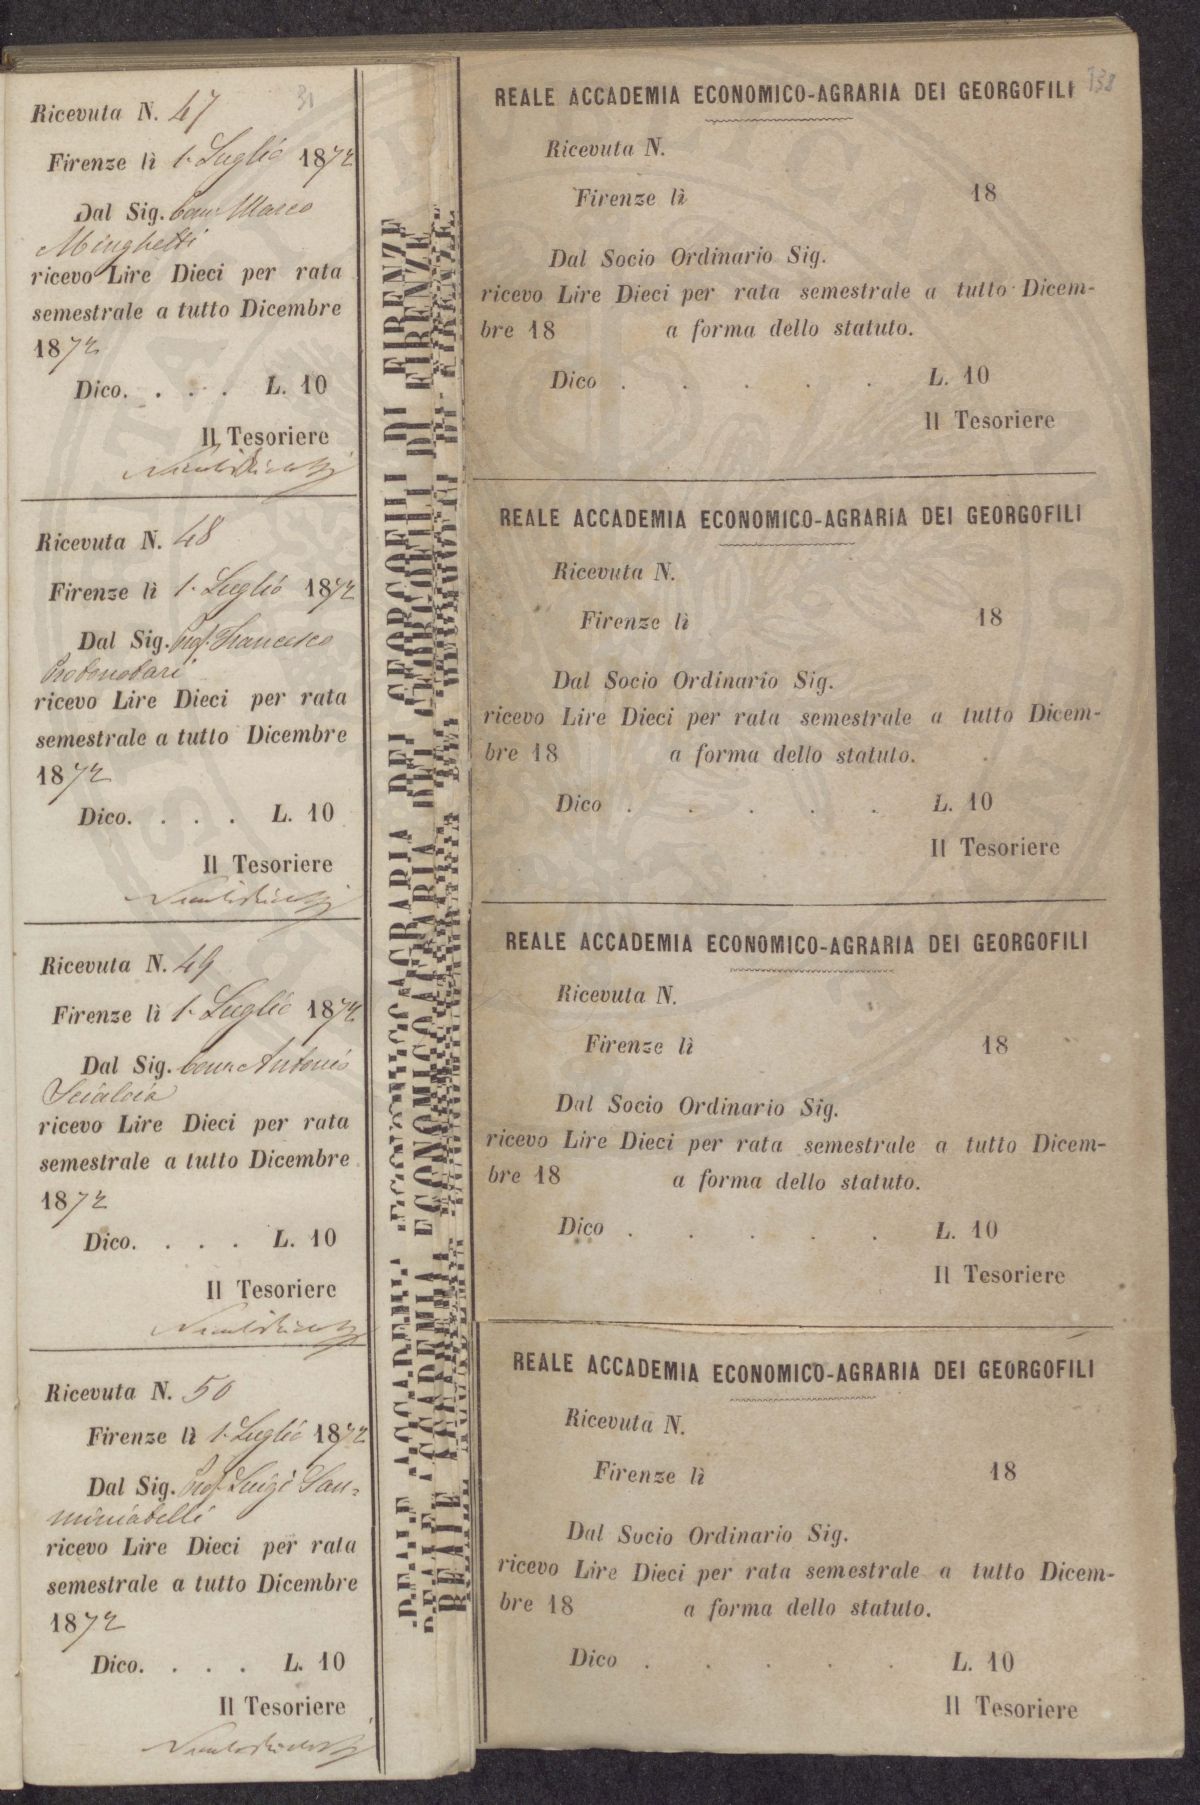 31
Ricevuta N. 47
Firenze lì 1. Luglio 1872
Dal Sig. Comr Marco
Minghetti
ricevo Lire Dieci per rata
semestrale a tutto Dicembre
1872
Dico. . . . L. 10
Il Tesoriere
Ricevuta N. 48
Firenze lì 1. Luglio 1872
Dal Sig. Prof. Francesco
Protonotari
ricevo Lire Dieci per rata
semestrale a tutto Dicembre
1872
Dico. . . . L. 10
Il Tesoriere
Ricevuta N. 49
Firenze lì 1. Luglio 1872
Dal Sig. Comr Antonio
Scialoia
ricevo Lire Dieci per rata
semestrale a tutto Dicembre
1872
Dico. . . . L. 10
Il Tesoriere
Ricevuta N. 50
Firenze lì 1. Luglio 1872
Dal Sig. Prof. Luigi San=
miniatelli
ricevo Lire Dieci per rata
semestrale a tutto Dicembre
1872
Dico. . . . L. 10
Il Tesoriere
REALE ACCADEMIA ECONOMICO-AGRARIA DEI GEORGOFILI DI FIRENZE
138
REALE ACCADEMIA ECONOMICO-AGRARIA DEI GEORGOFILI
Ricevuta N.
Firenze lì 18
Dal Socio Ordinario Sig.
ricevo Lire Dieci per rata semestrale a tutto Dicem-
bre 18 a forma dello statuto.
Dico . . . . . L. 10
Il Tesoriere
REALE ACCADEMIA ECONOMICO-AGRARIA DEI GEORGOFILI
Ricevuta N.
Firenze lì 18
Dal Socio Ordinario Sig.
ricevo Lire Dieci per rata semestrale a tutto Dicem-
bre 18 a forma dello statuto.
Dico . . . . . L. 10
Il Tesoriere
REALE ACCADEMIA ECONOMICO-AGRARIA DEI GEORGOFILI
Ricevuta N.
Firenze lì 18
Dal Socio Ordinario Sig.
ricevo Lire Dieci per rata semestrale a tutto Dicem-
bre 18 a forma dello statuto.
Dico . . . . . L. 10
Il Tesoriere
REALE ACCADEMIA ECONOMICO-AGRARIA DEI GEORGOFILI
Ricevuta N.
Firenze lì 18
Dal Socio Ordinario Sig.
ricevo Lire Dieci per rata semestrale a tutto Dicem-
bre 18 a forma dello statuto.
Dico . . . . . L. 10
Il Tesoriere